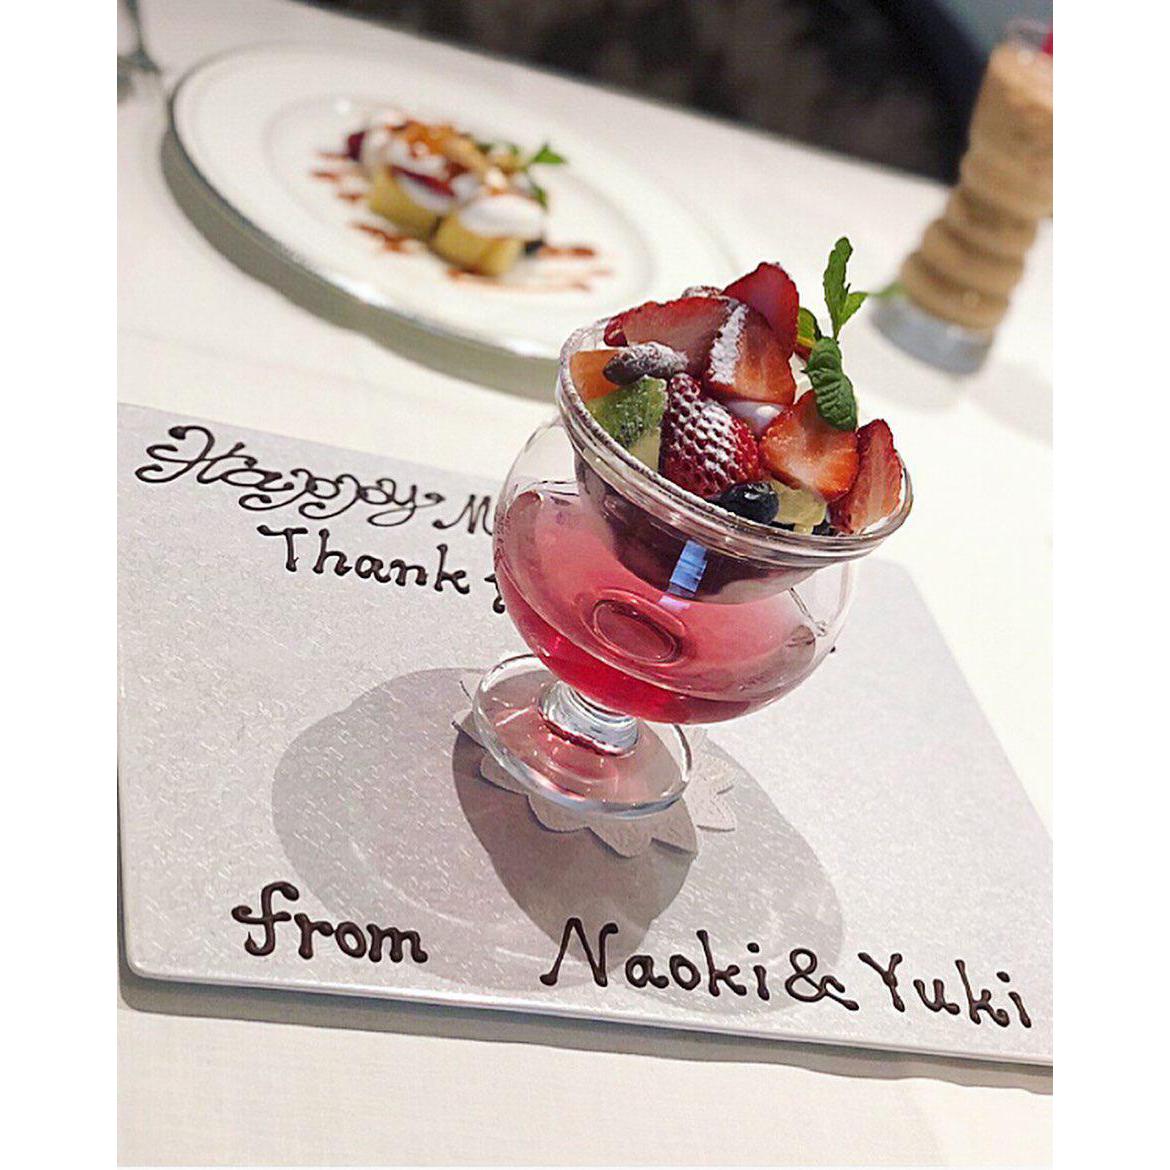 Happy
Thank
from Naoki & Yuki